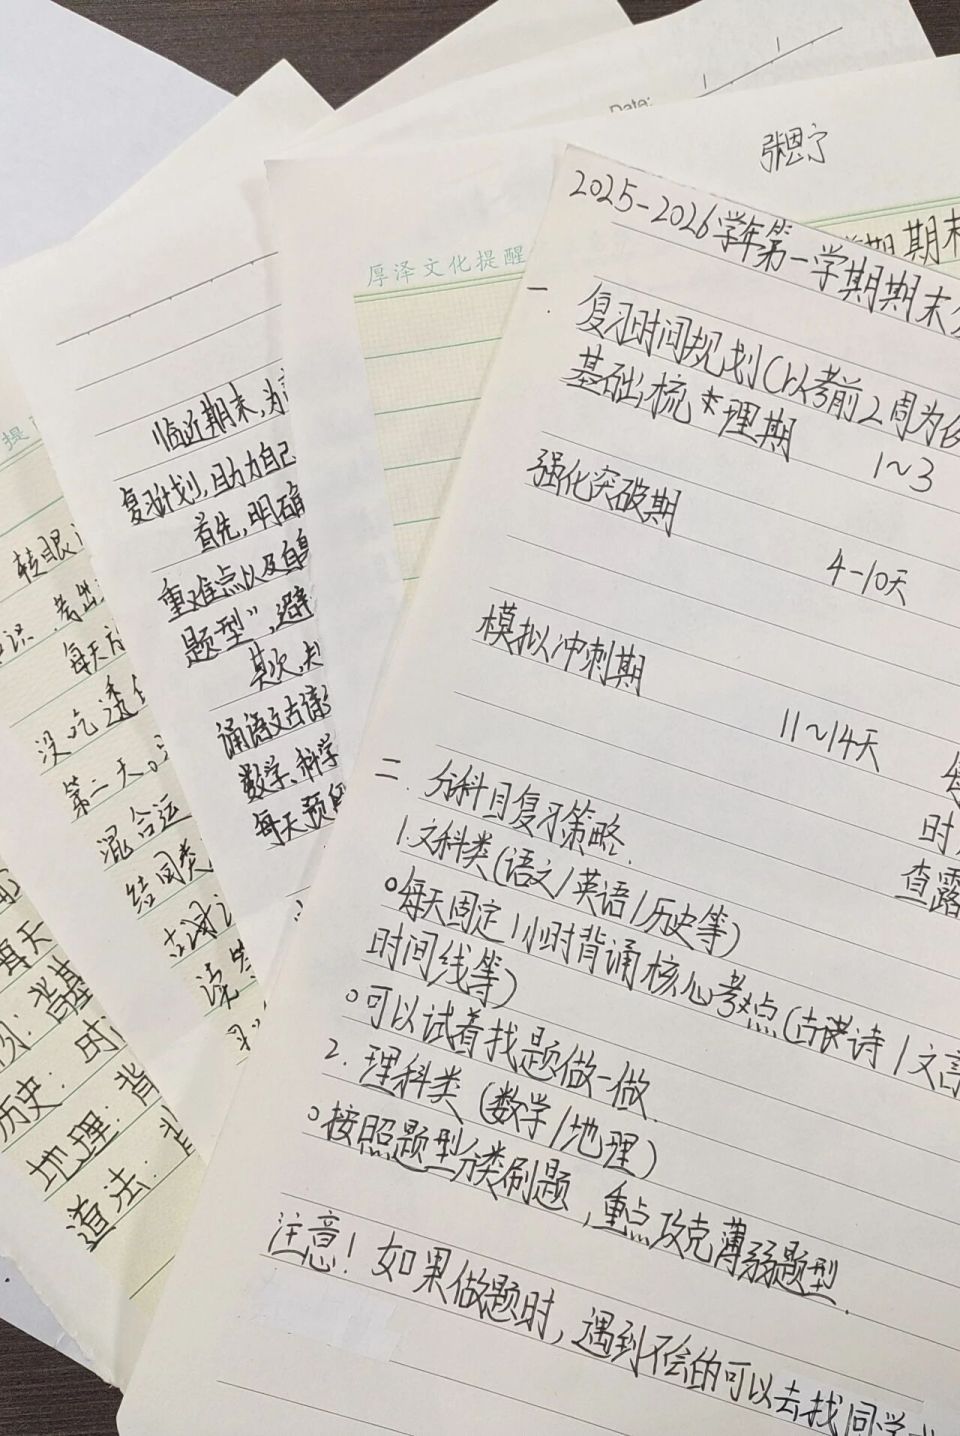 Date:
张恩宁
期末
厚泽文化提醒
2025-2026学年第一学期期末
一
复习时间规划(以考前2周为
基础梳理期
1~3
强化突破期
4-10天
模拟冲刺期
11~14天
时
查露
二.分科目复习策略.
1.文科类(语文/英语/历史等)
○每天固定1小时背诵核心考点(古诗/文言
时间线等)
○可以试着找题做一做
2.理科类(数学/地理)
○按照题型分类刷题,重点攻克薄弱题型.
注意!如果做题时,遇到不会的可以去找同学
临近期末,为
复习计划,助力自己
首先,明确
重难点以及自
题型”,避
其次,
诵语文古诗
数学、科学
每天预
提
转眼
识,考出
每天
没吃透
第二天。
混合运
结同类
古诗
读
每天
背基
历史:时
地理:背
道法:背